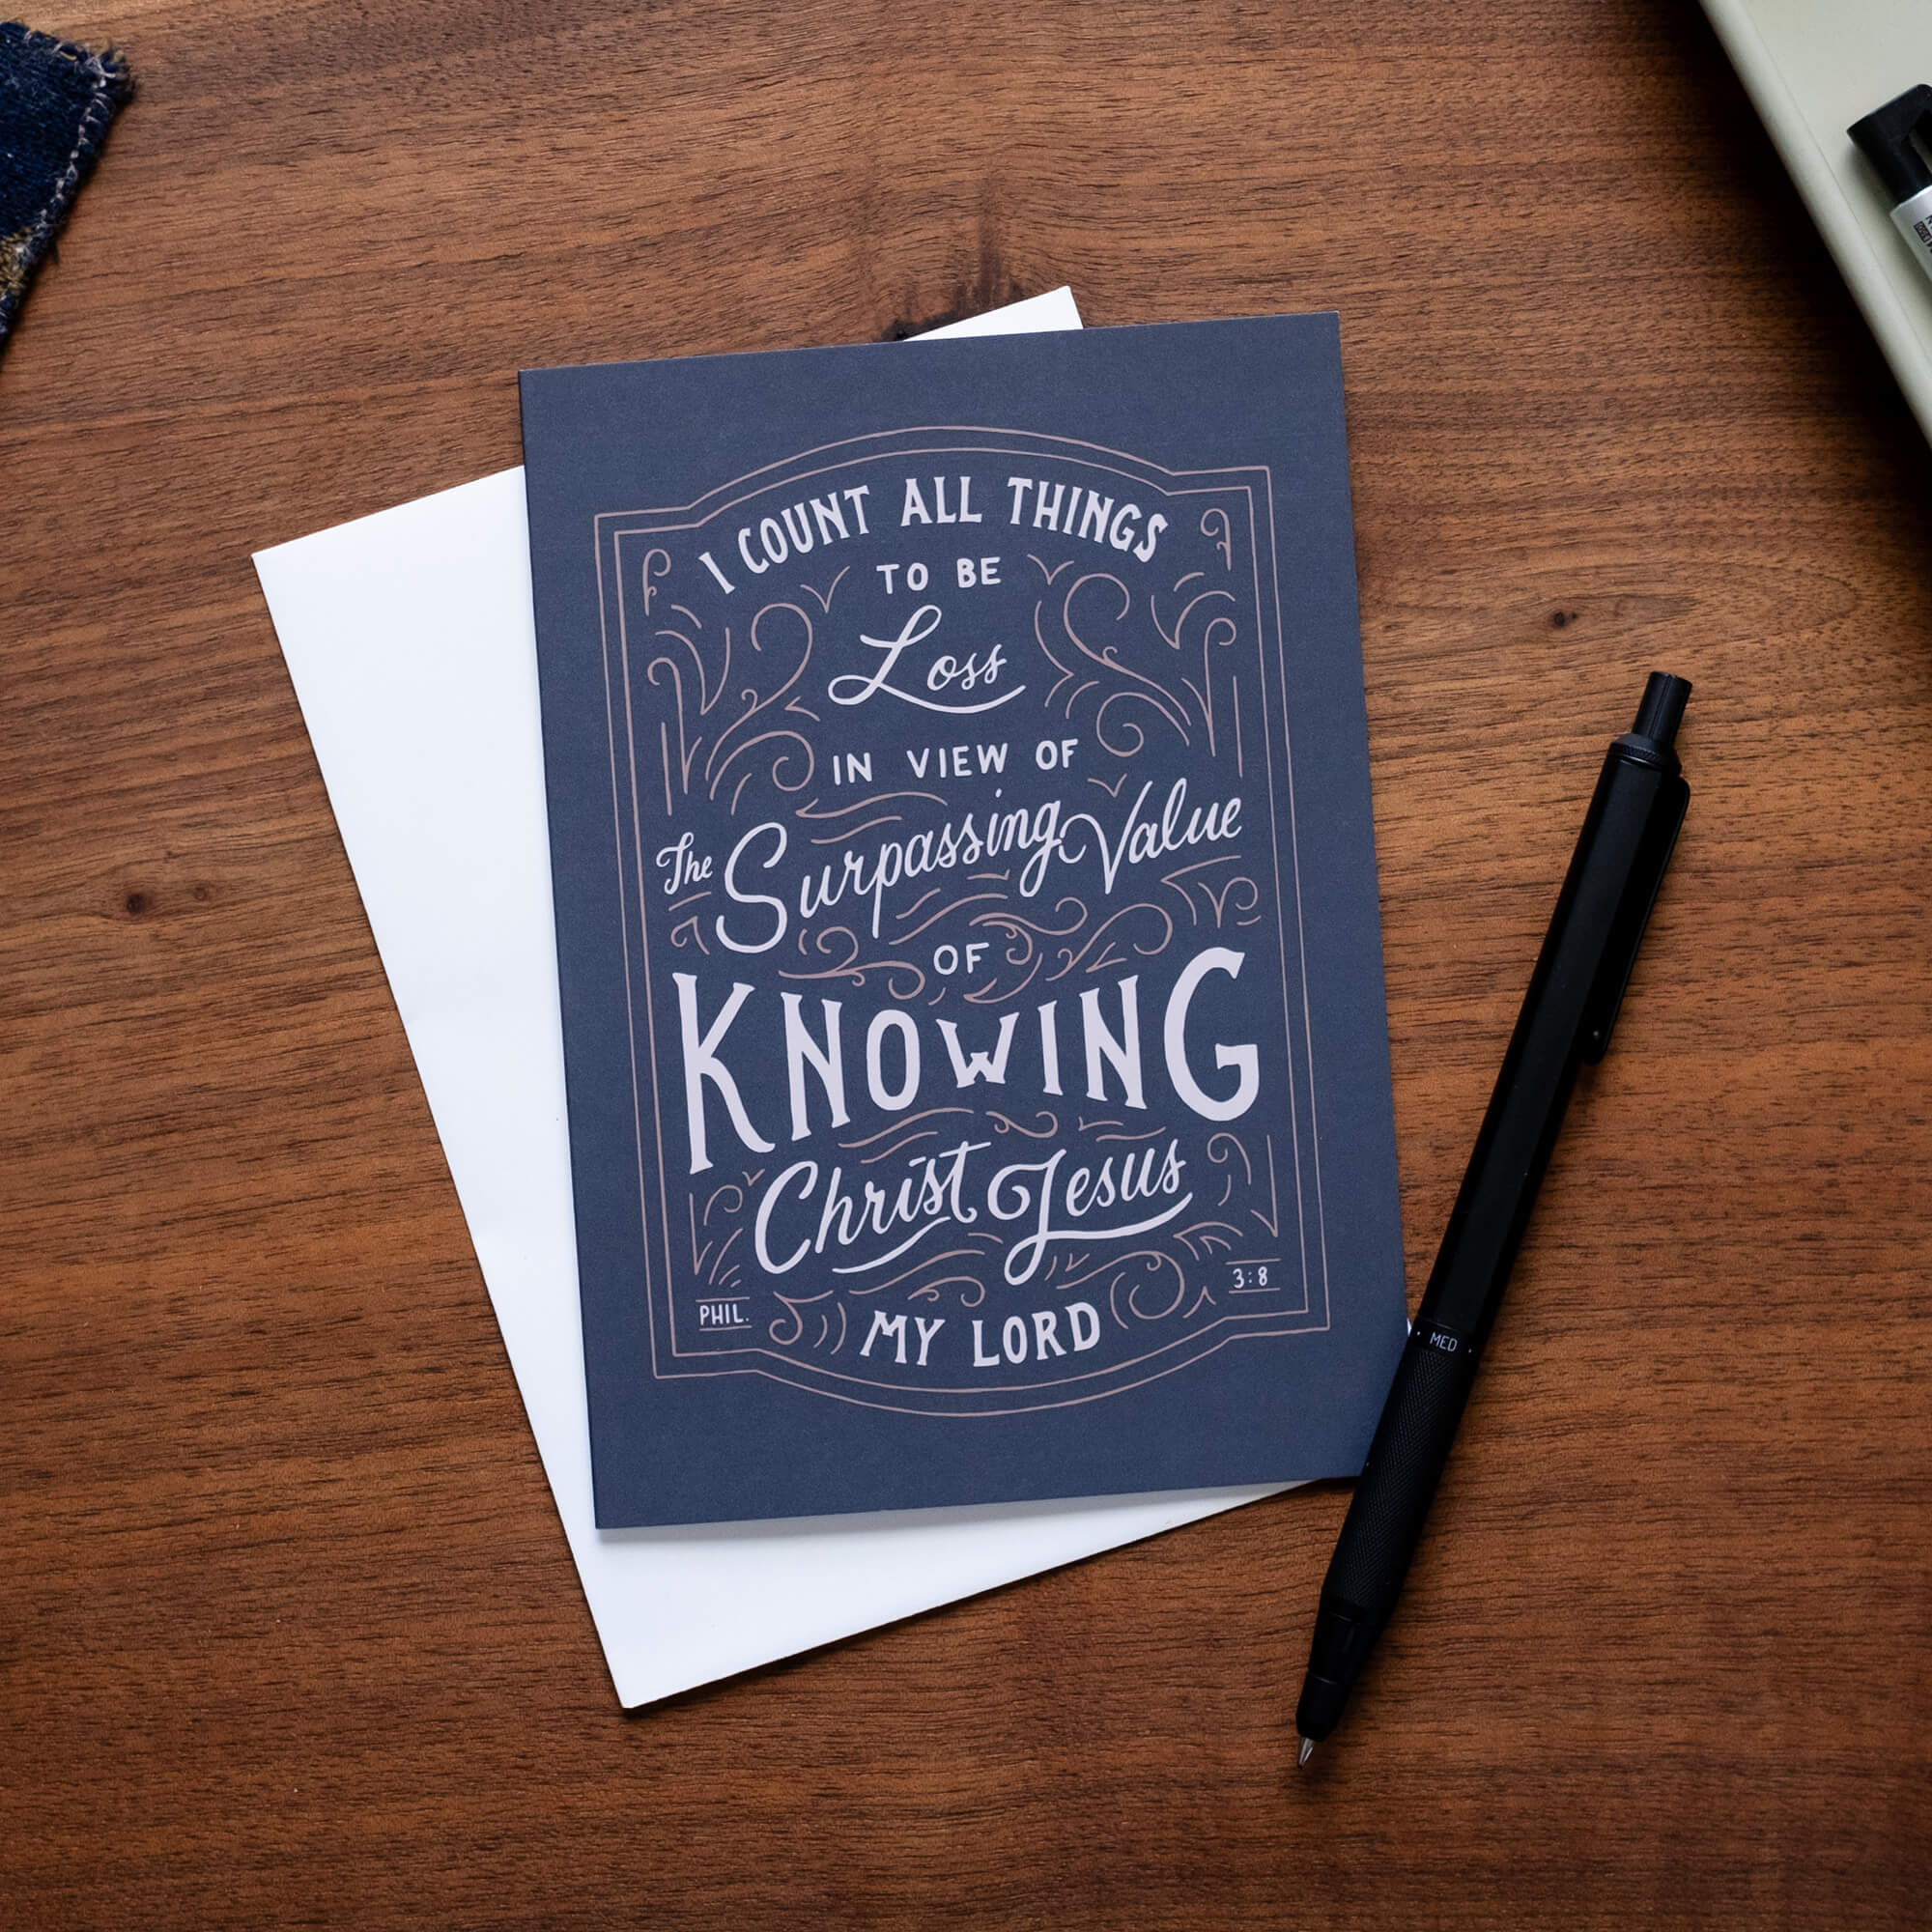 I COUNT ALL THINGS
TO BE
Loss
IN VIEW OF
The Surpassing Value
OF
KNOWING
Christ Jesus
PHIL. 3:8
MY LORD
MED